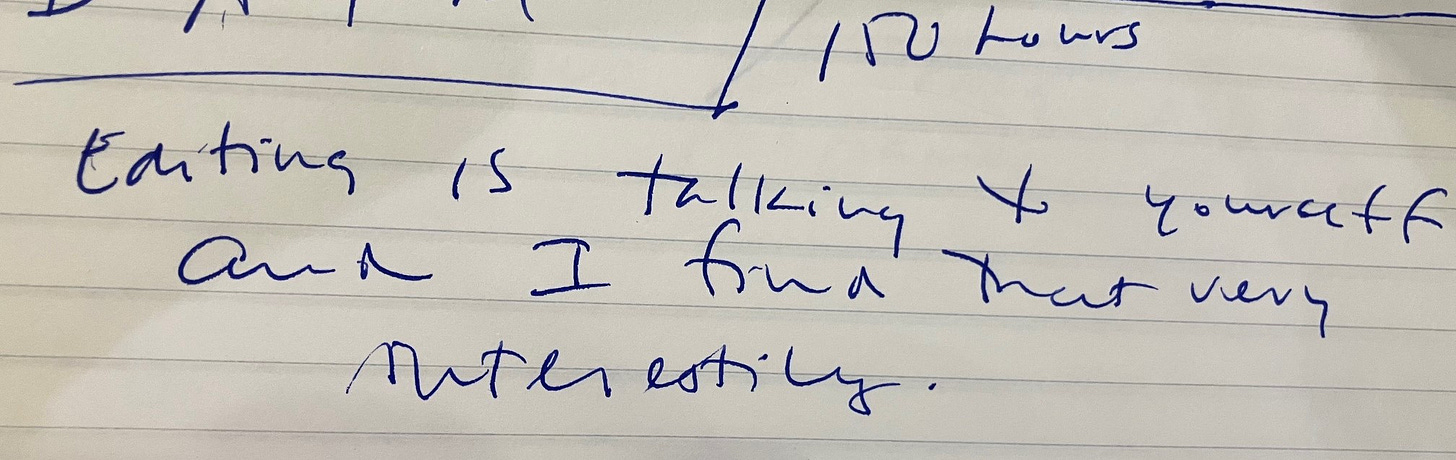 150 hours
Editing is talking to yourself
and I find that very
interesting.